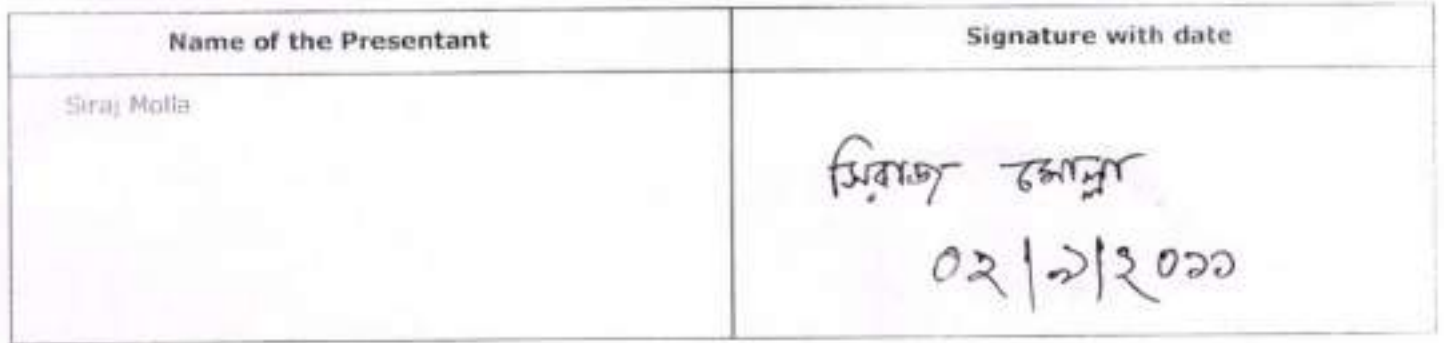 Name of the Presentant
Signature with date
Siraj Molla
সিরাজ মোল্লা
০২|৯|২০১১